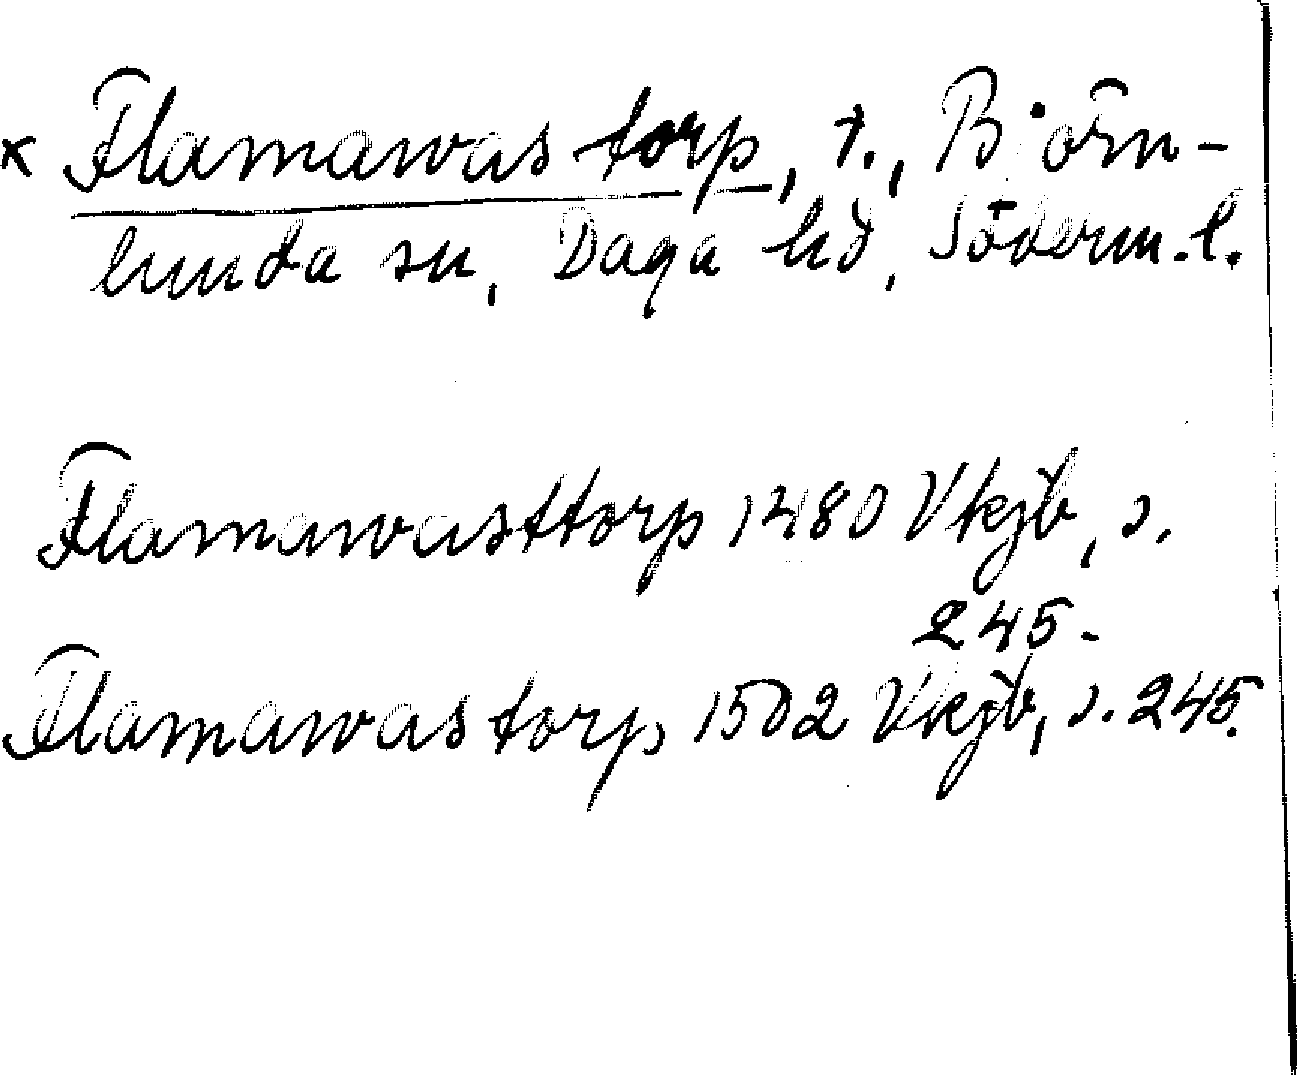 × Flamawas torp, t., Björn-
lunda sn, Daga hd, Söderm.l.
Flamawasttorp 1480 Vkjb, s.
245.
Flamawas torp 1502 Vkjb, s. 245.